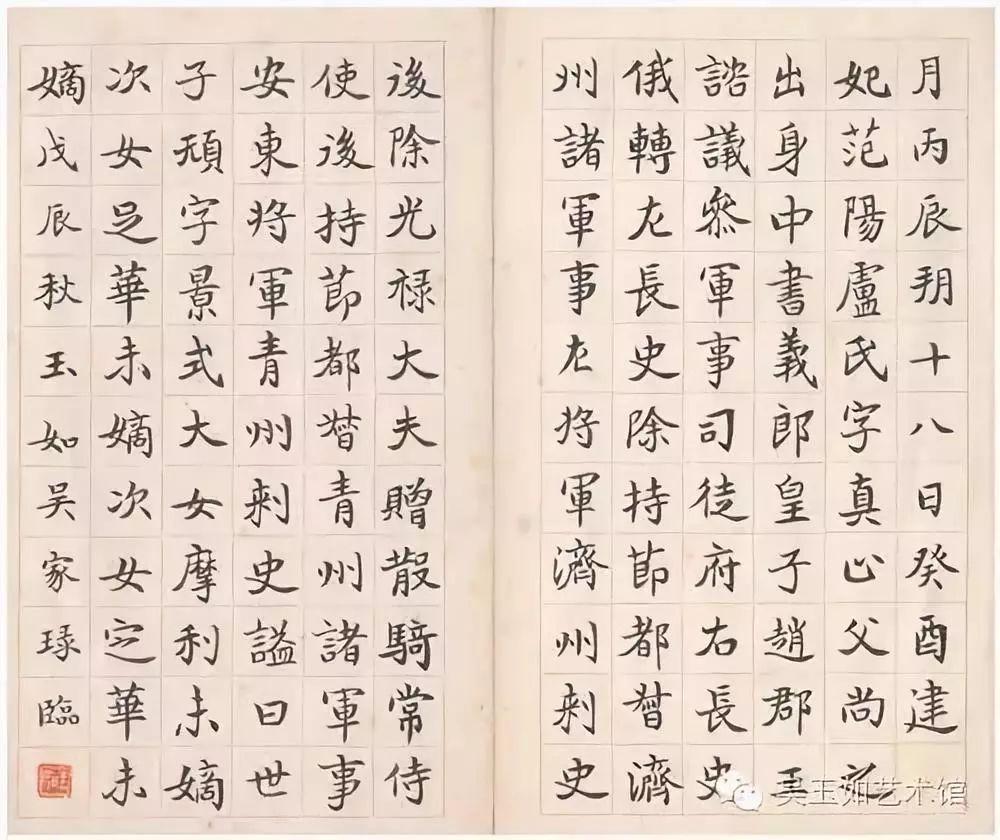 月丙辰朔十八日癸酉建
妃范陽盧氏字真心父尚之
出身中書義郎皇子趙郡王
諮議叅軍事司徒府右長史
俄轉左長史除持節都督濟
州諸軍事左將軍濟州刺史
後除光禄大夫贈散騎常侍
使後持節都督青州諸軍事
安東將軍青州刺史謚曰世
子頑字景式大女摩利未嫡
次女足華未嫡次女定華未
嫡戊辰秋玉如吴家琭臨
吴玉如艺术馆